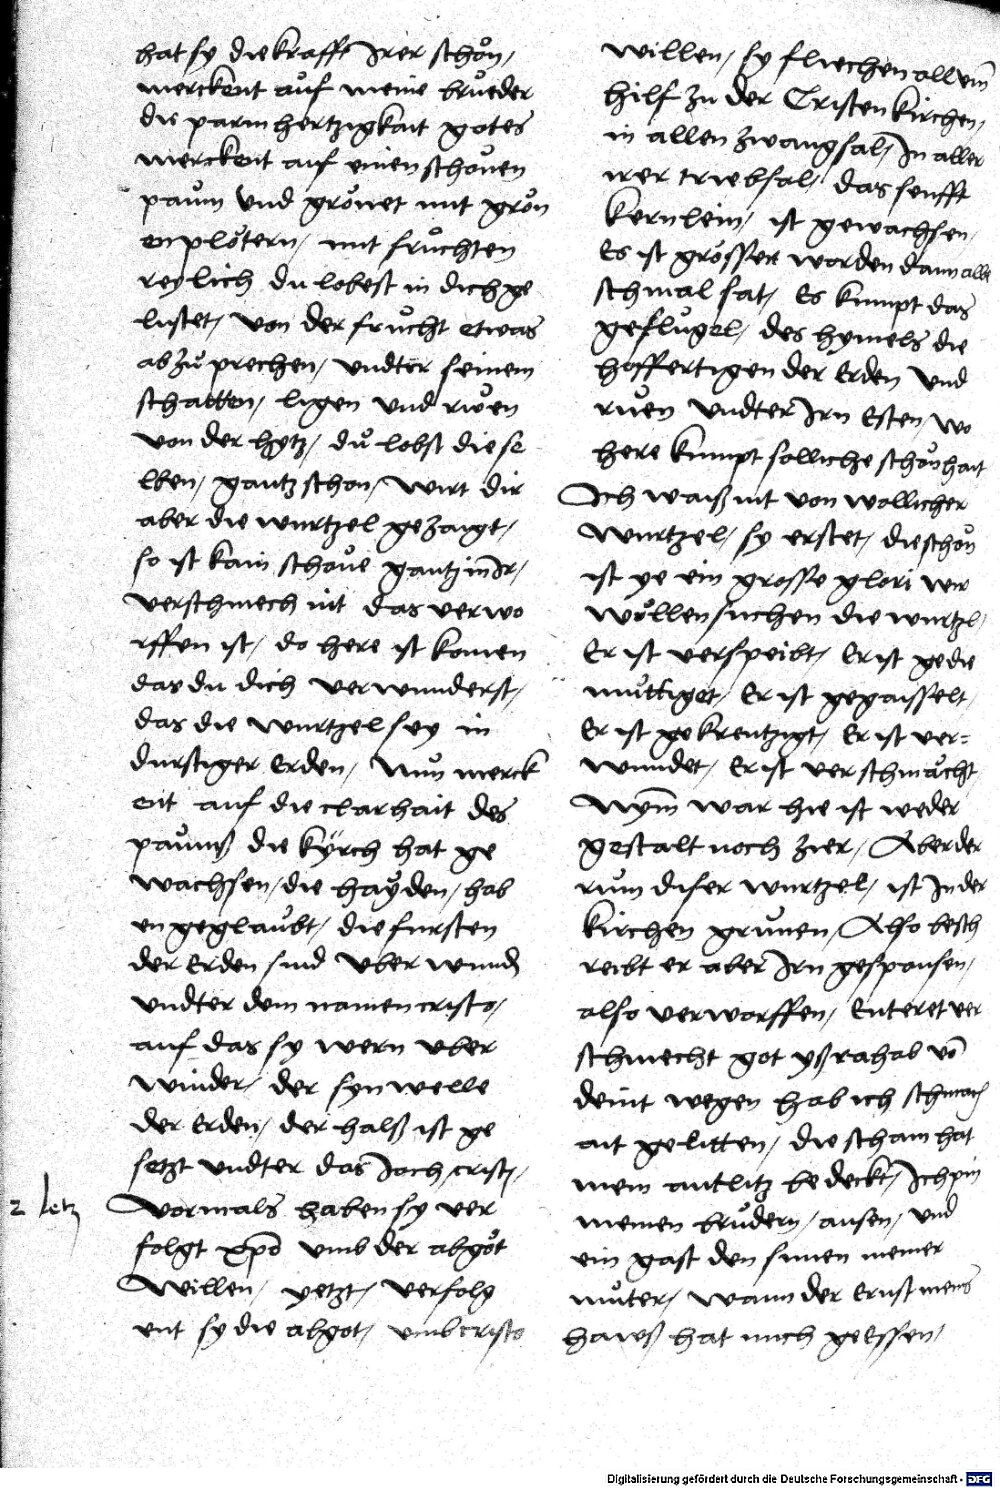 hat sy die krafft Irer schön,
merckent auf meine brueder
die parmhertzigkait gotes
merckent auf einen schönen
paum vnd grönet mit grön
enplötern, mit früchten
reylich du lobest in dich ge
lustet, von der frücht etwas
abzuprechen, vndter seinem
schatten, ligen vnd rwen
von der hytz, dü lobst diese
lben, gantz schon, wirt dir
aber die wurtzel gezaigt,
so ist kain schöne gantz in Ir,
verschmech nit das verwo
rffen ist, do here ist komen
das du dich verwunderst,
das die wurtzel sey in
durstiger Erden, Nun merck
ent auf die clarhait des
paumß die kÿrch hat ge
wachsen, die hayden, hab
en geglaubt, die fursten
der Erden sind vber wund
vndter dem namen cristo,
auf das sy wern vber
winder, der synwelle
der Erden, der halß ist ge
setzt vndter das Joch cristj,
2 letz
vormals haben sy ver
folgt xpō vmb der abgöt
willen, yetzt, verfolg
ent sy die abgot, vmb cristo
willen, sy fliechen all vm̄
hilf zu der Cristen kirchen,
in allen zwangsal, In aller
irer triebsal, das senfft
kernlein, ist gewachsen,
Es ist grösser worden dann alle
schmal sat, Es kumpt das
geflugel, des hymels die
hoffertigen der Erden vnd
rwen vndter Irn Esten, wo
here kumpt solliche schönhait
Ich waiß nit von wöllicher
wurtzel, sy erstet, die schön
ist ye ein grosse glori wir
wöllen suchen die wurtzl,
Er ist verspeibt, Er ist gedie
muttiget, Er ist gegaisselt,
Er ist gekreutzigt, Er ist ver=
wundet, Er ist verschmächt,
Nym̄ war hie ist weder
gestalt noch zier, Aber der
rum diser wurtzel, ist In der
kirchen grunen, Also besch
reibt er aber Irn gesponsen,
also verworffen, Enteret ver
schmecht got ysrahab vō
deint wegen hab ich schmach
ait gelitten, die scham hat
mein antlitz bedeckt, Ich pin
meinen brüdern, ausen, vnd
ein gast den sunen meiner
muter, wann der Ernst meins
hawß hat mich geessen,
Digitalisierung gefördert durch die Deutsche Forschungsgemeinschaft - DFG